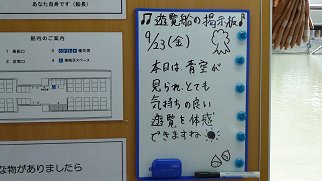 あなた自身です（船長）
船内のご案内
1 乗船口
2 船首
3 優先席
4 車椅子スペース
な物がありましたら
♪遊覧船の掲示板♪
9/23(金)
本日は、青空が
見られ、とても
気持ちの良い
遊覧を体感
できますね